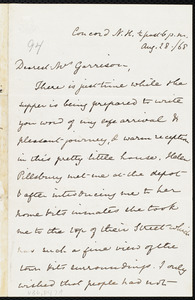 Concord N.H. ½ past 6 p.m.
Aug. 28/68
Dearest Mr Garrison,
There is just time while the
supper is being prepared to write
you word of my safe arrival &
pleasant journey, & warm reception
in this pretty little house. Helen
Pillsbury met me at the depot
& after introducing me to her
home & its inmates she took
me to the top of their Street which
has such a fine view of the
town & its surroundings. I only
wished that people had not